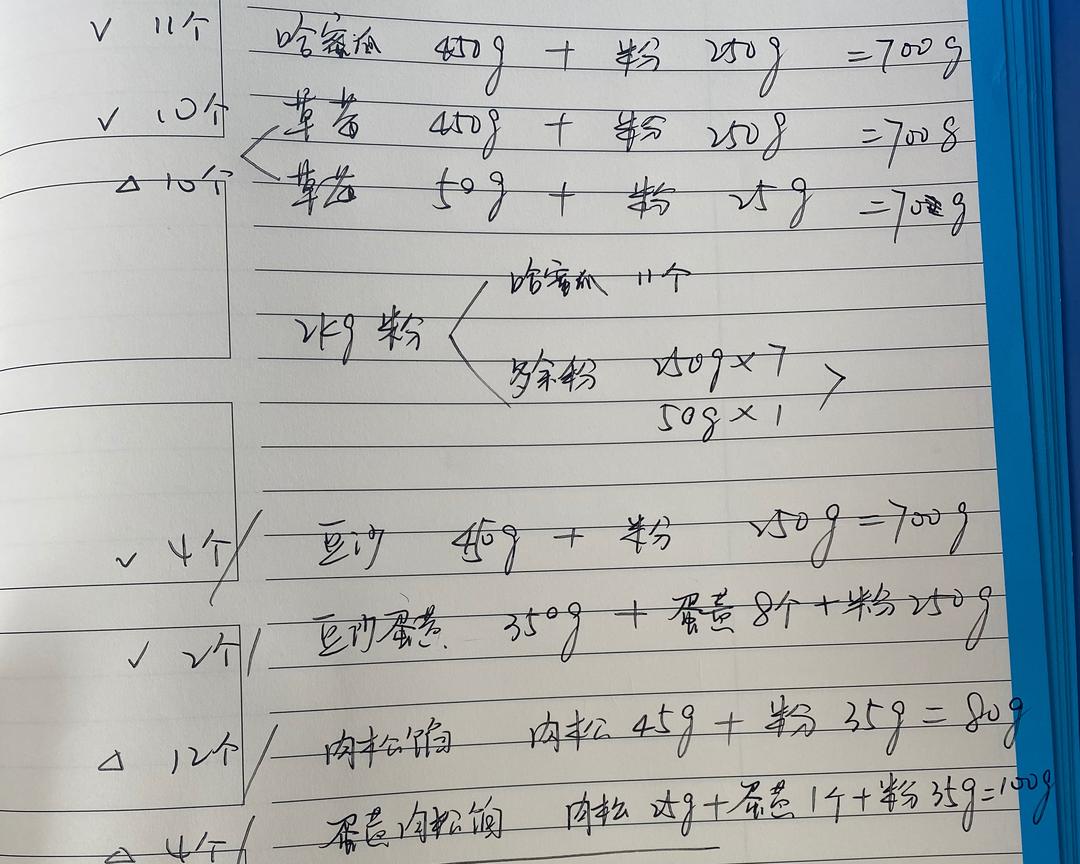 √ 11个 哈蜜瓜 450g + 粉 250g =700g
√ 10个 草莓 450g + 粉 250g =700g
△ 10个 草莓 50g + 粉 25g =70g
哈蜜瓜 11个
2kg 粉
多余粉 250g×7
50g×1
√ 4个 豆沙 450g + 粉 250g =700g
√ 2个 豆沙蛋黄 350g + 蛋黄 8个 + 粉 250g
△ 12个 肉松馅 肉松 45g + 粉 35g = 80g
△ 4个 蛋黄肉松馅 肉松 25g + 蛋黄 1个 + 粉 35g =100g